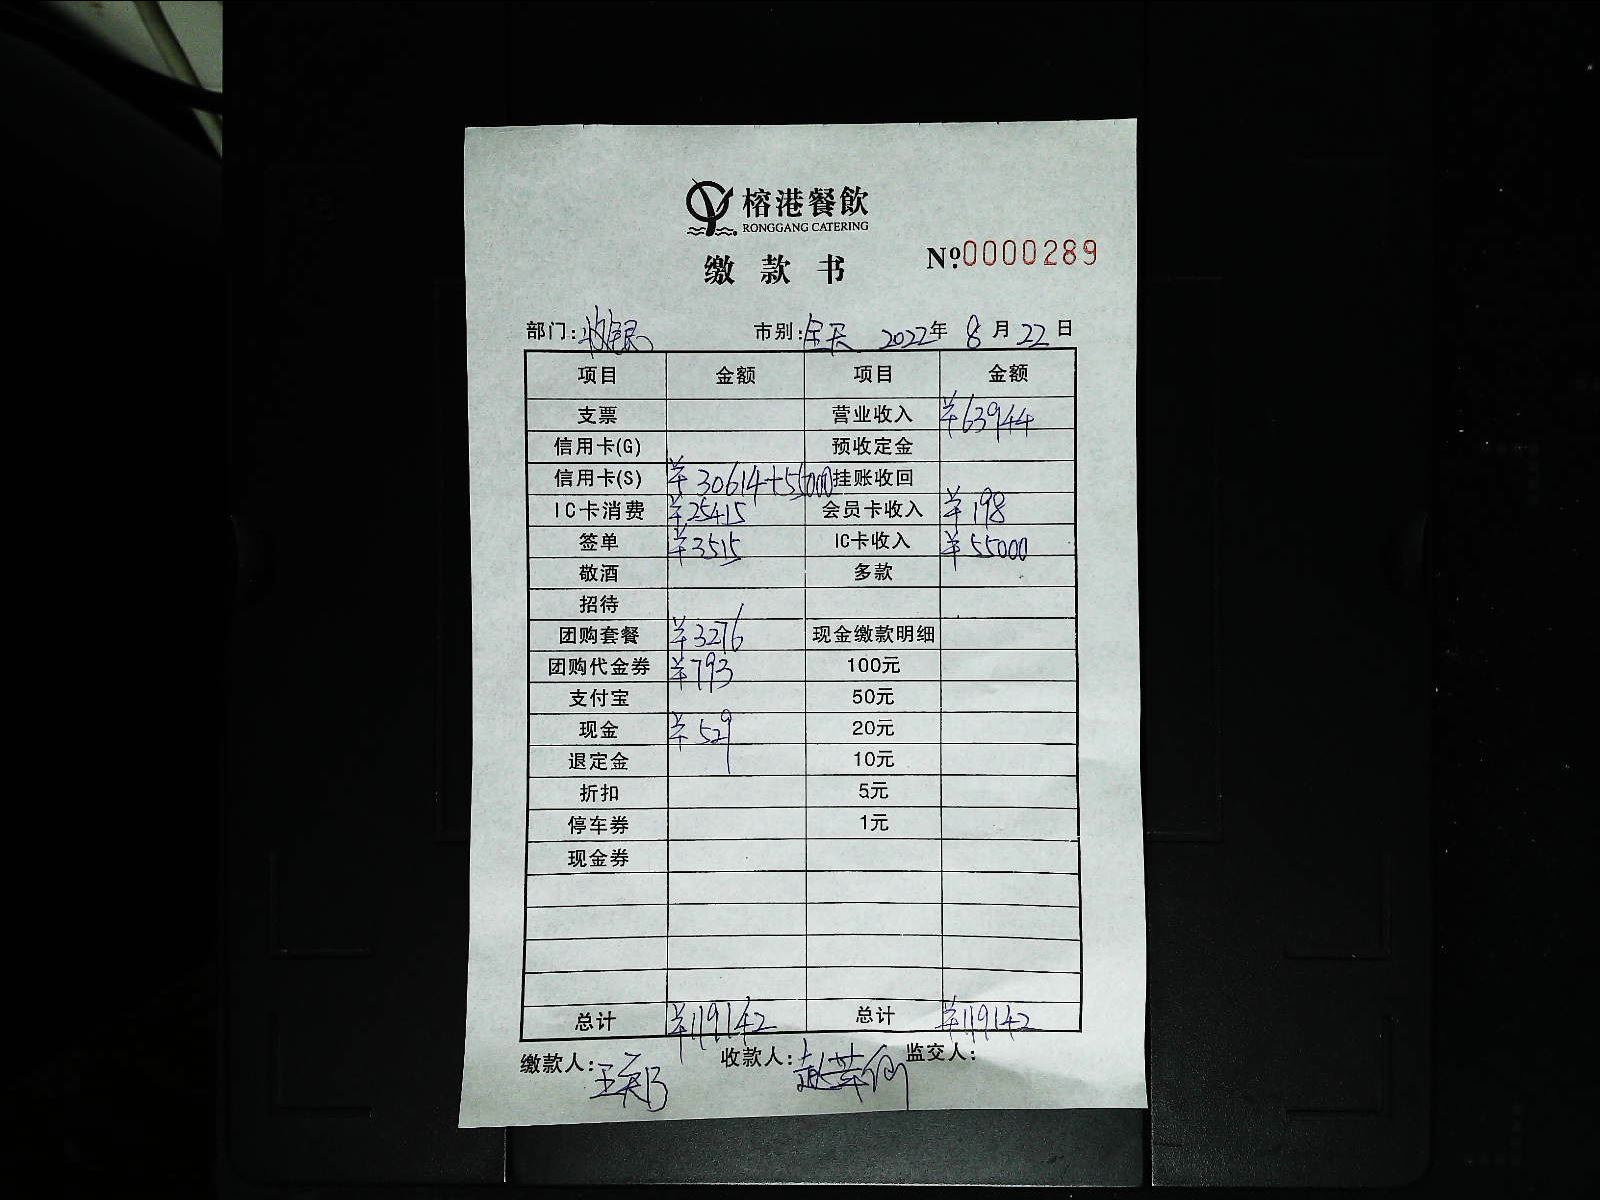 榕港餐飲
RONGGANG CATERING
缴款书 Nº.0000289
部门:收银 市别:全天 2022年8月22日
项目 金额 项目 金额
支票 营业收入 ¥63944
信用卡(G) 预收定金
信用卡(S) ¥30614+55000 挂账收回
IC卡消费 ¥25415 会员卡收入 ¥198
签单 ¥3515 IC卡收入 ¥55000
敬酒 多款
招待
团购套餐 ¥3276 现金缴款明细
团购代金券 ¥793 100元
支付宝 50元
现金 ¥529 20元
退定金 10元
折扣 5元
停车券 1元
现金券
总计 ¥119142 总计 ¥119142
缴款人:王 收款人:赵 监交人: